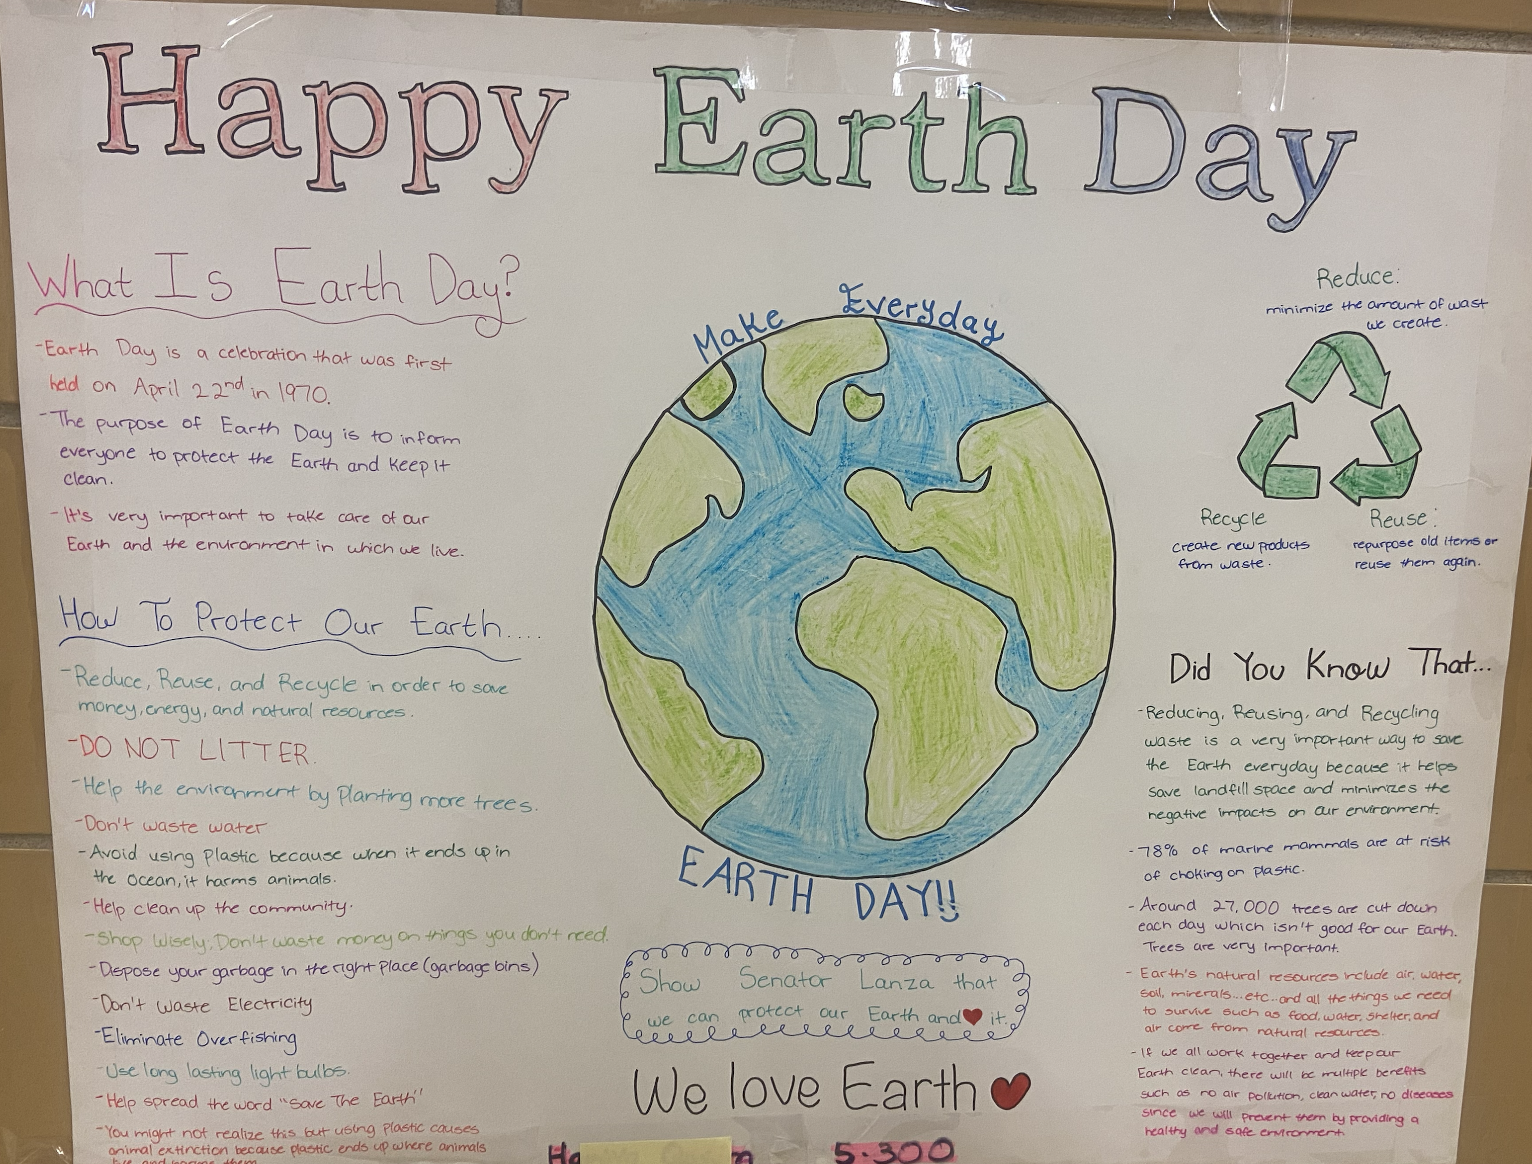 Happy Earth Day
What Is Earth Day?
-Earth Day is a celebration that was first
held on April 22nd in 1970.
-The purpose of Earth Day is to inform
everyone to protect the Earth and keep it
clean.
-It's very important to take care of our
Earth and the environment in which we live.
How To Protect Our Earth....
-Reduce, Reuse, and Recycle in order to save
money, energy, and natural resources.
-DO NOT LITTER.
-Help the environment by Planting more trees.
-Don't waste water
-Avoid using Plastic because when it ends up in
the ocean, it harms animals.
-Help clean up the community.
-Shop Wisely; Don't waste money on things you don't need.
-Dispose your garbage in the right Place (garbage bins)
-Don't Waste Electricity
-Eliminate Overfishing
-Use long lasting light bulbs.
-Help spread the word "Save The Earth"
-You might not realize this but using Plastic causes
animal extinction because plastic ends up where animals
live and harms them
Make Everyday
EARTH DAY!!
Show Senator Lanza that
we can protect our Earth and ❤ it.
We love Earth ❤
5-300
Reduce:
minimize the amount of wast
we create.
Recycle
create new products
from waste.
Reuse:
repurpose old items or
reuse them again.
Did You Know That...
-Reducing, Reusing, and Recycling
waste is a very important way to save
the Earth everyday because it helps
save landfill space and minimizes the
negative impacts on our environment.
-78% of marine mammals are at risk
of choking on plastic.
-Around 27,000 trees are cut down
each day which isn't good for our Earth.
Trees are very important.
-Earth's natural resources include air, water,
soil, minerals...etc..and all the things we need
to survive such as food, water, shelter, and
air come from natural resources.
-If we all work together and keep our
Earth clean, there will be multiple benefits
such as no air pollution, clean water, no diseases
since we will prevent them by providing a
healthy and safe environment.